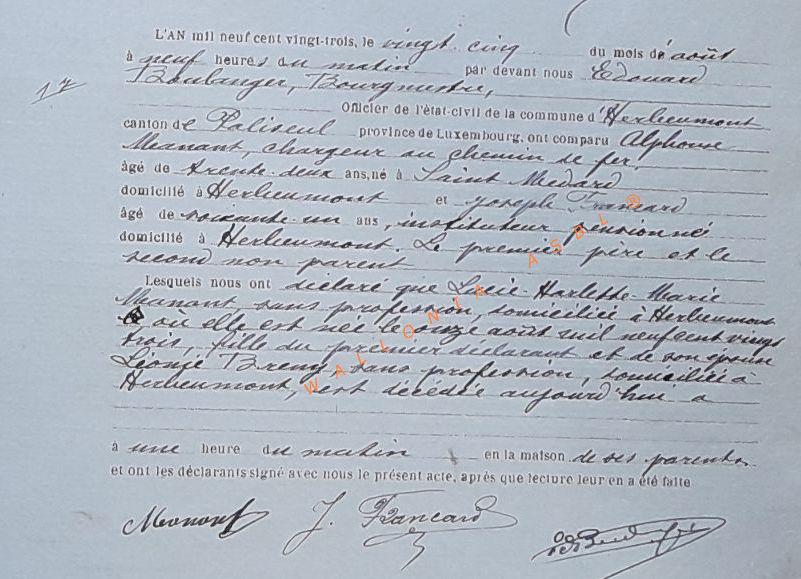 L'AN mil neuf cent vingt-trois, le vingt-cinq du mois d'août
à neuf heures du matin par devant nous Edouard
Boulanger, Bourgmestre,
17
Officier de l'état-civil de la commune d'Herbeumont
canton de Paliseul province de Luxembourg, ont comparu Alphonse
Meanant, chargeur au chemin de fer,
âgé de trente-deux ans, né à Saint Médard
domicilié à Herbeumont et Joseph Francard
âgé de soixante-un ans, instituteur pensionné
domicilié à Herbeumont. Le premier père et le
second non parent
Lesquels nous ont déclaré que Lucie-Harlette-Marie
Meanant sans profession, domiciliée à Herbeumont
où elle est née le onze août mil neuf cent vingt
trois, fille du premier déclarant et de son épouse
Léonie, sans profession, domiciliée à
Herbeumont, est décédée aujourd'hui a
à une heure du matin en la maison de ses parents
et ont les déclarants signé avec nous le présent acte, après que lecture leur en a été faite
Meanant J. Francard
WALLONIA ASBL ®